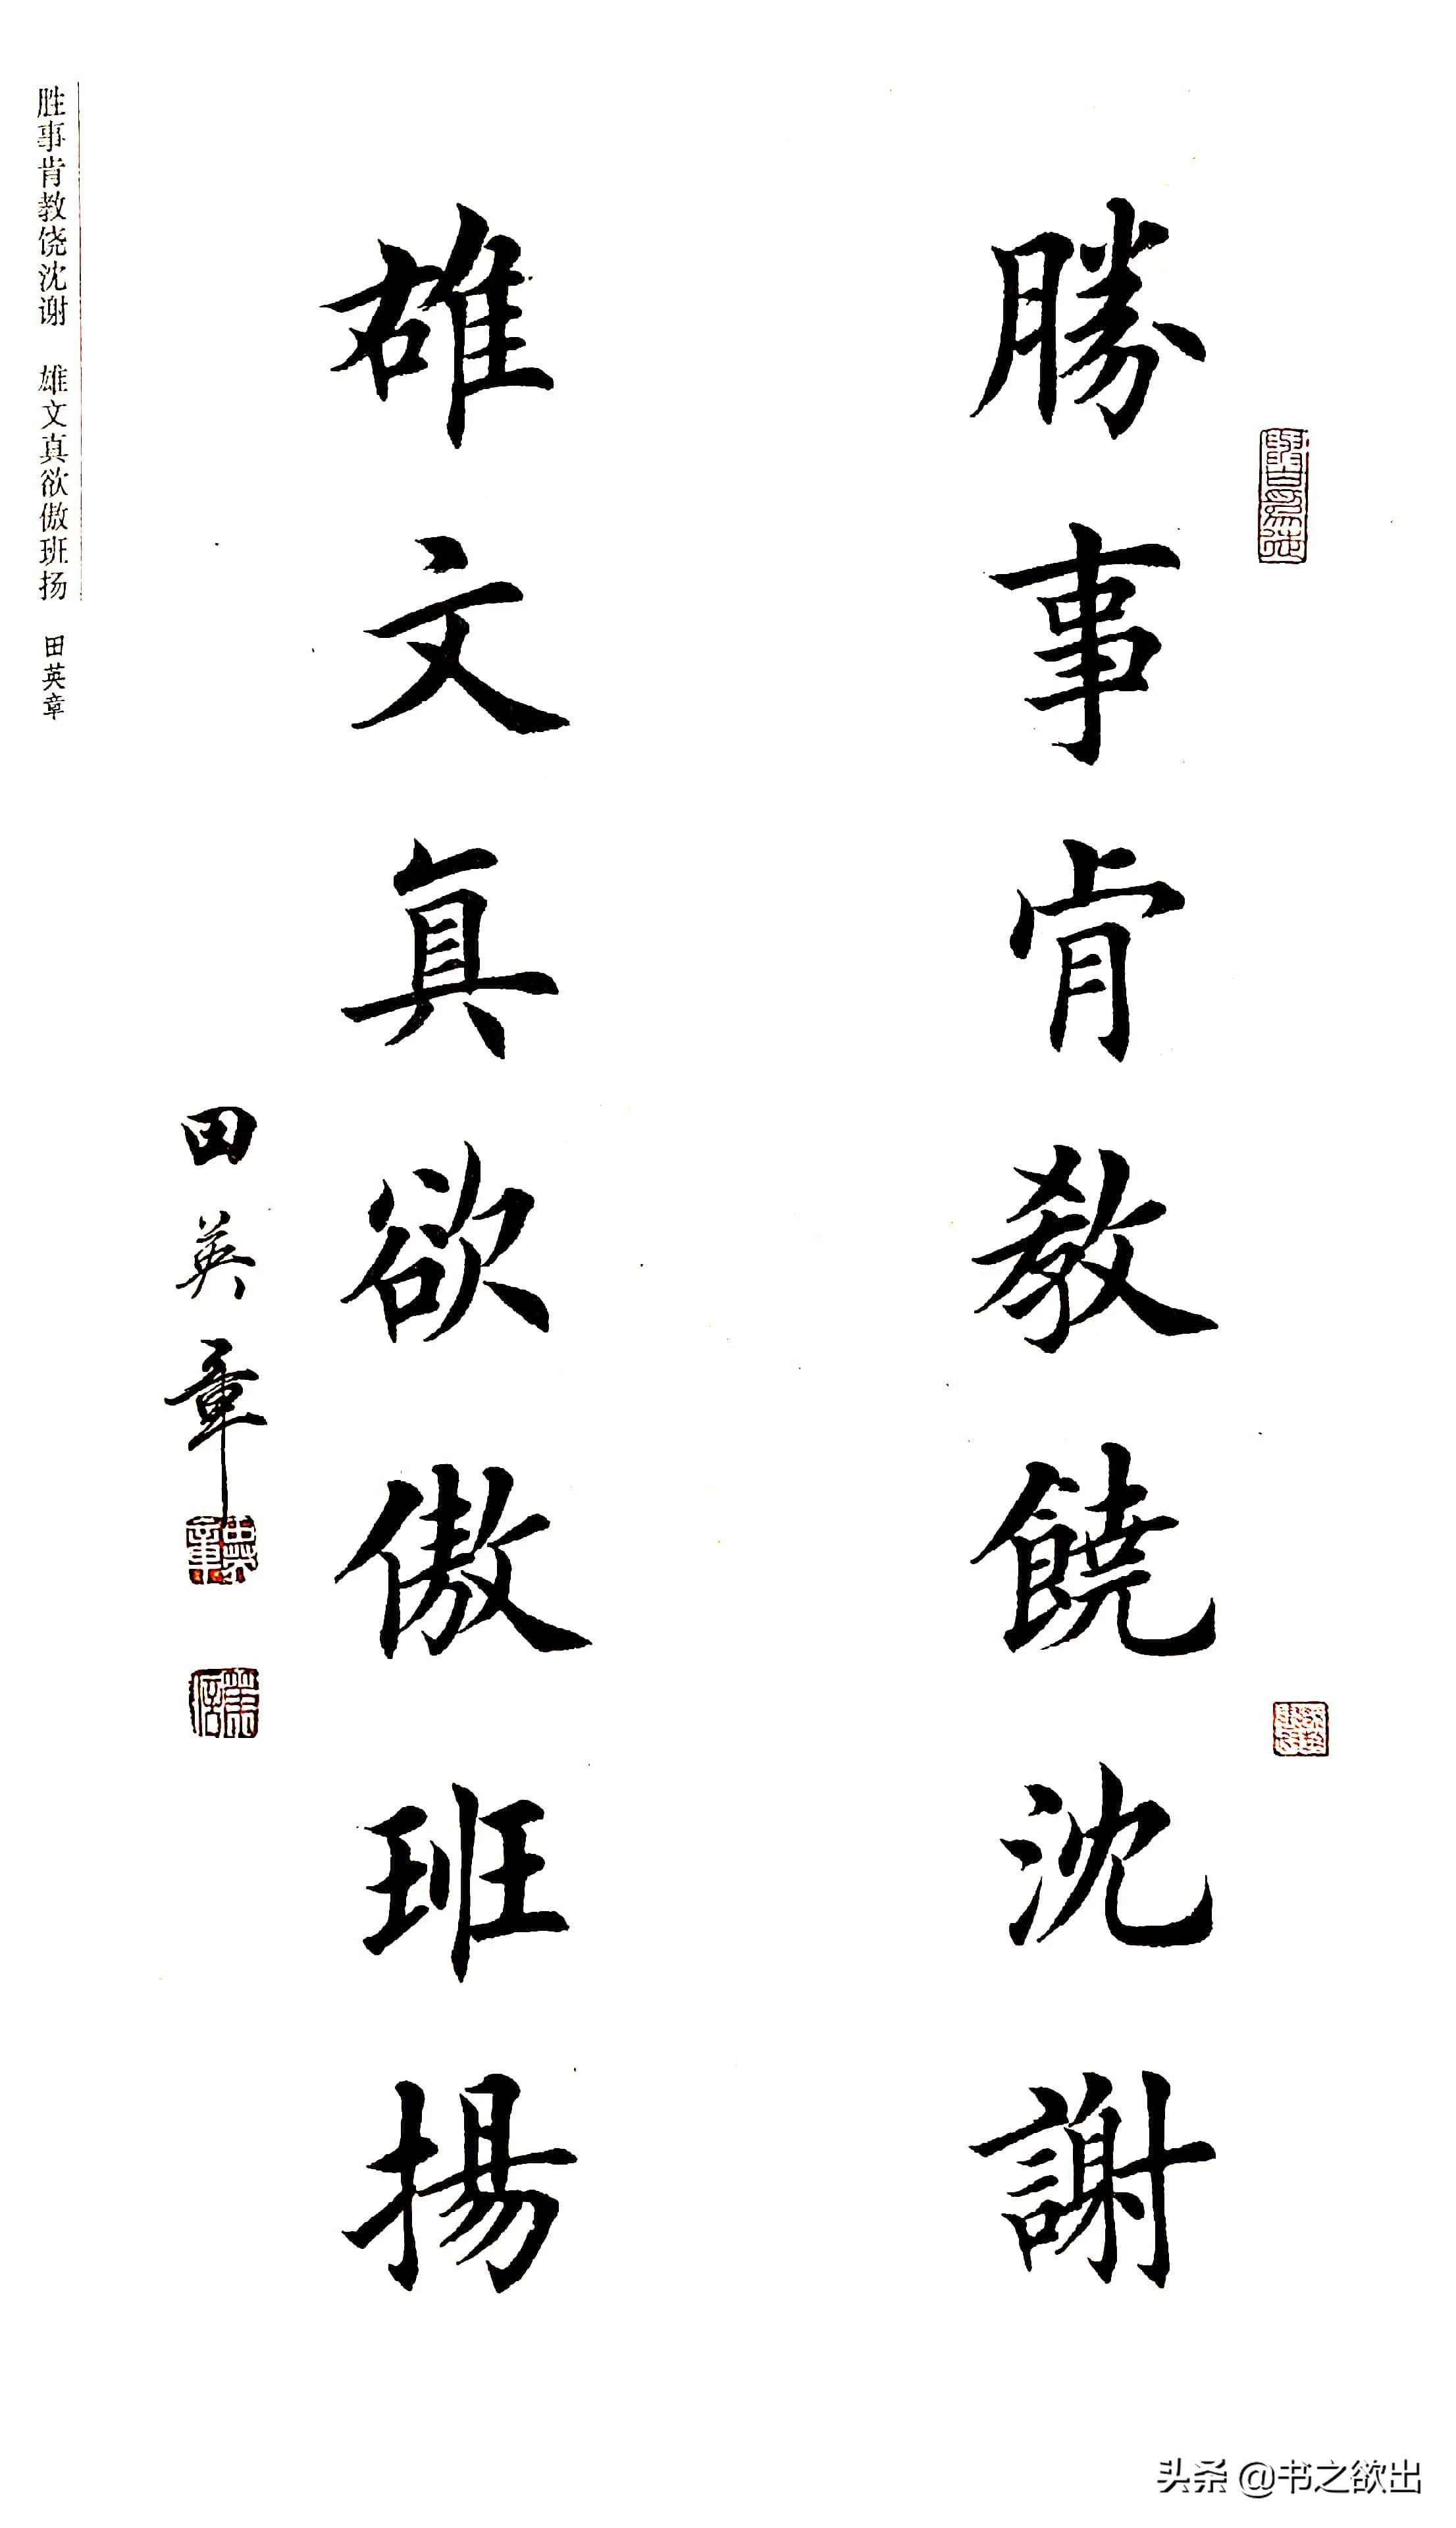 勝事肯教饒沈謝
雄文真欲傲班揚
田英章
胜事肯教饶沈谢 雄文真欲傲班扬 田英章
头条 @书之欲出